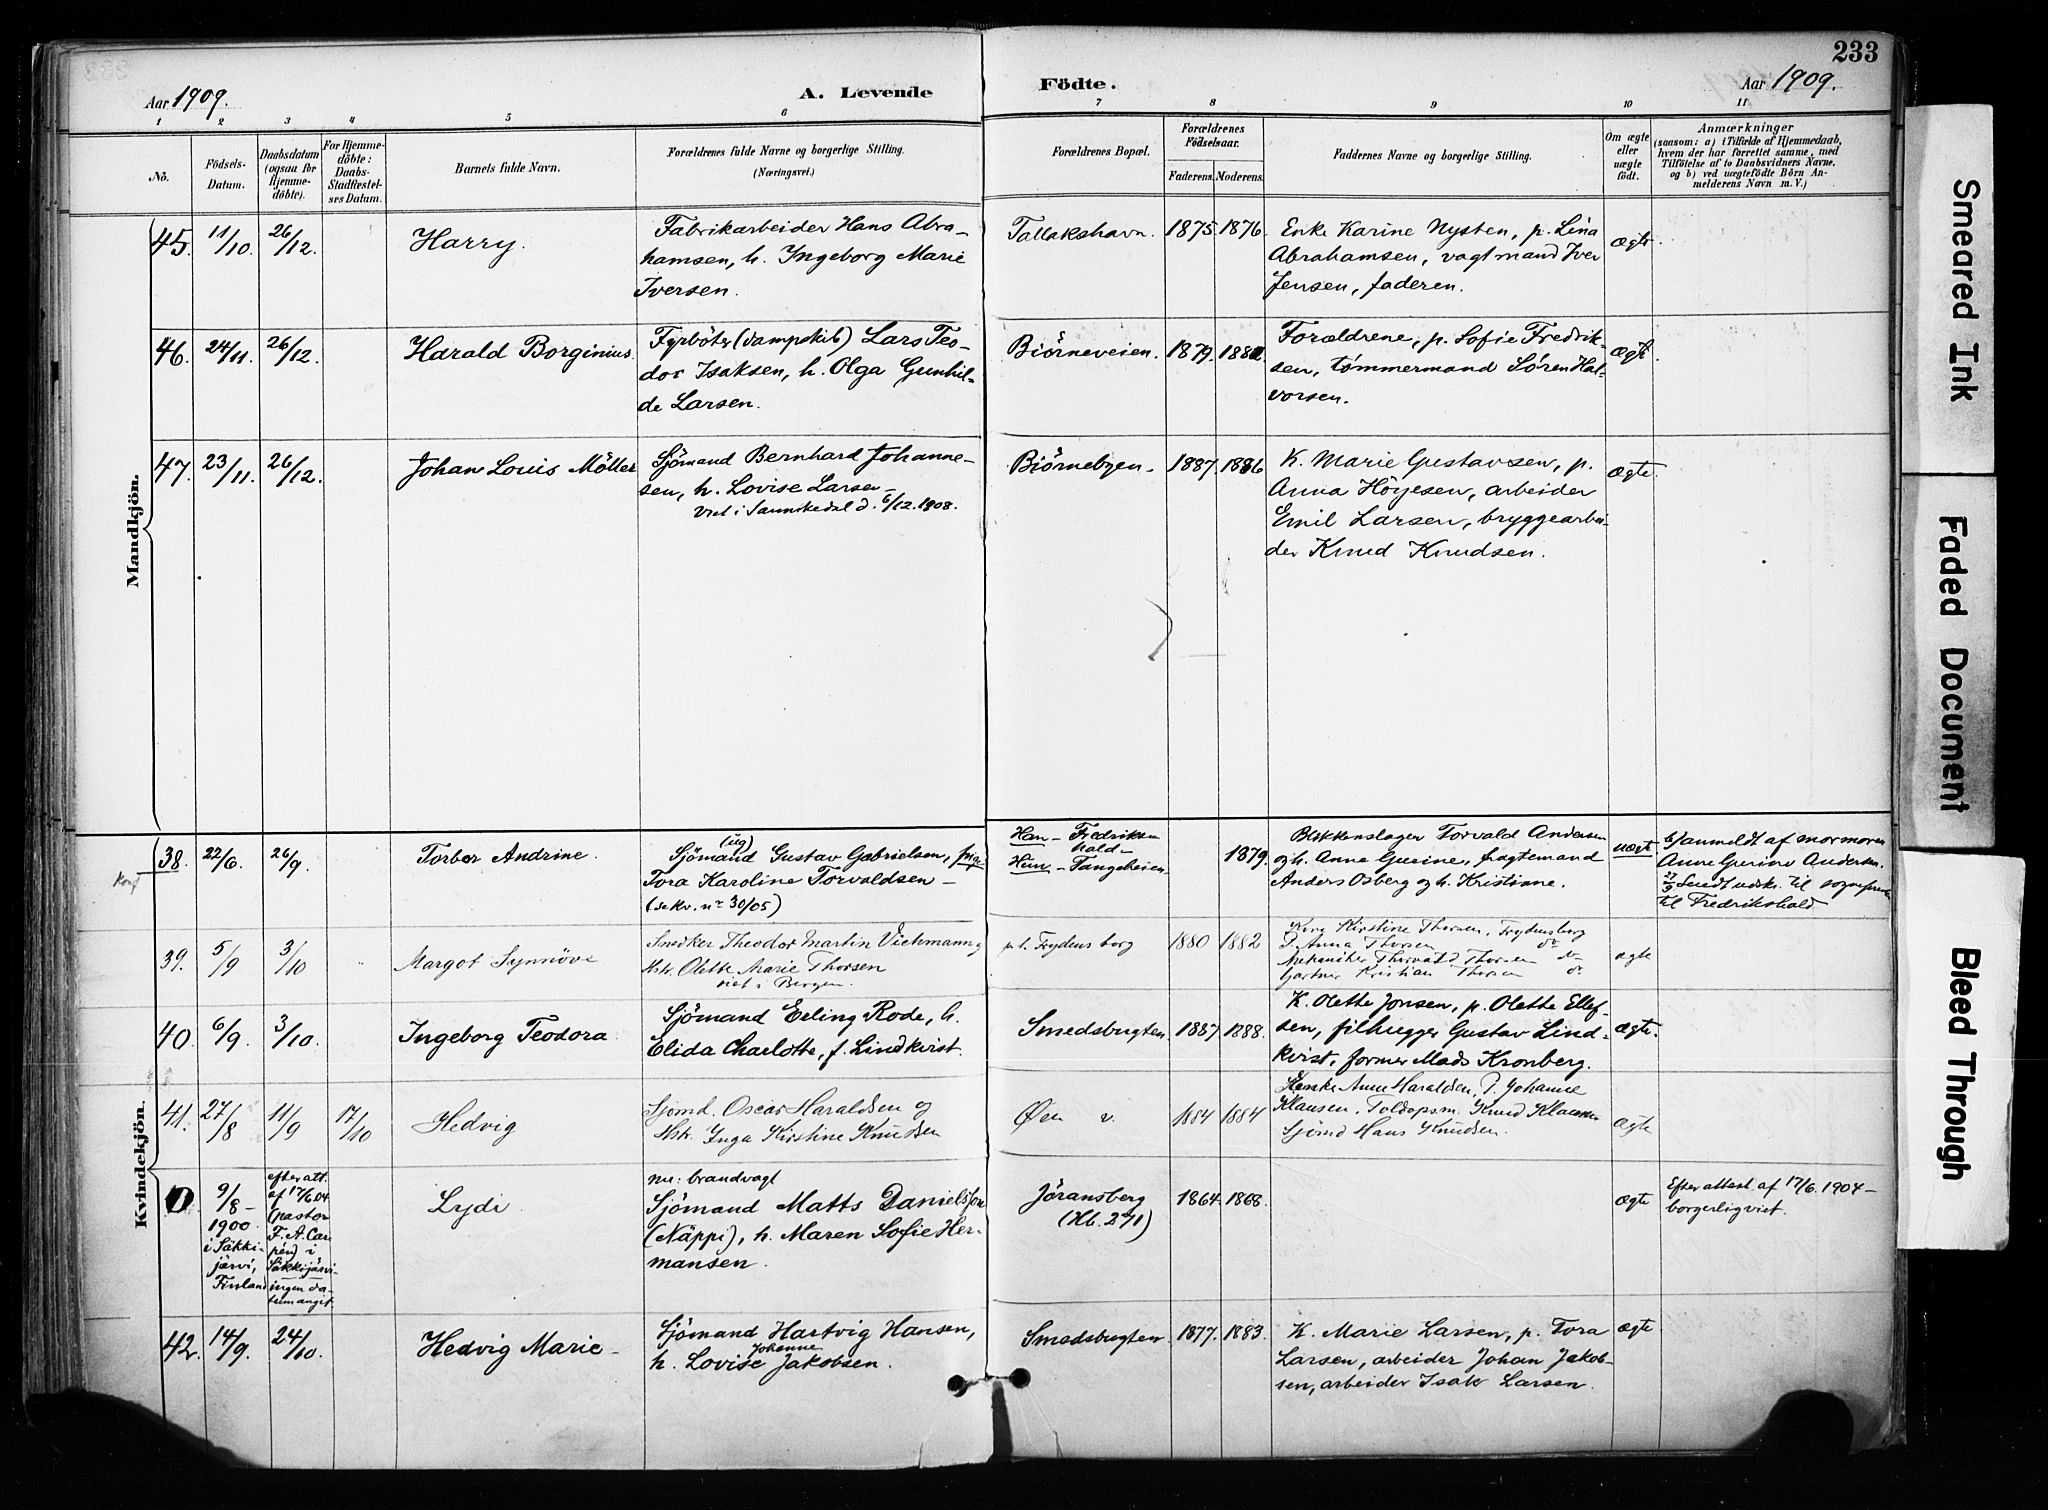 233
Aar 1909.
A. Levende
Födte.
Aar 1909.
1 2 3 4 5 6 7 8 9 10 11
No.
Födsels-
Datum.
Daabsdatum
(ogsaa for
Hjemme-
döbte).
For Hjemme-
döbte:
Daabs-
Stadfæstel-
ses Datum.
Barnets fulde Navn.
Forældrenes fulde Navne og borgerlige Stilling.
(Næringsvei.)
Forældrenes Bopæl.
Forældrenes
Födselsaar.
Faderens. Moderens.
Faddernes Navne og borgerlige Stilling.
Om ægte
eller
uægte
födt.
Anmærkninger
(saasom: a) i Tilfælde af Hjemmedaab,
hvem der har forrettet samme, med
Tilföielse af to Daabsvidners Navne,
og b) ved uægtefödte Börn An-
melderens Navn m. V.)
Mandkjön.
45. 11/10. 26/12. Harry.
Fabrikarbeider Hans Abra-
hamsen, h. Ingeborg Marie
Iversen.
Tallakshavn. 1875. 1876.
Enke Karine Nysten, p. Lina
Abrahamsen, vagtmand Iver
Jensen, faderen.
ægte.
46. 24/11. 26/12. Harald Borginius.
Fyrböter (dampskib) Lars Teo-
dor Isaksen, h. Olga Gunhil-
de Larsen.
Biörneveien. 1879.
Forældrene, p. Sofie Fredrik-
sen, tømmermand Søren Hal-
vorsen.
ægte
47. 23/11. 26/12. Johan Louis Möller
Sjömand Bernhard Johanne-
sen, h. Lovise Larsen
Viet i Sannikedal d. 6/12. 1908.
Biörnebyen. 1887. 1886
K. Marie Gustavsen, p.
Anna Höyesen, arbeider
Emil Larsen, bryggearbei-
der Knud Knudsen.
ægte.
Kvindekjön.
38. 22/6. 26/9. Torbor Andrine.
Konf
(ug)
Sjömand Gustav Gabrielsen, pige
Tora Karoline Torvaldsen
(se Kv. nr 30/05)
Han - Fredriks-
hald-
Hun - Tangeheien
1879.
Blikkenslager Torvald Andersen
og h. Anne Gurine, fragtemand
Anders Osberg og h. Kristiane.
uægt.
b) anmeldt af mormoren
Anne Gurine Andersen.
27/9 Sendt udskr. til sogneprest
til Fredrikshald
39. 5/9 3/10 Margot Synnöve
Snedker Theodor Martin Viehmann og
Hstr. Olette Marie Thorsen
viet i Bergen.
p.t. Frydensborg 1880 1882
Kone Kirstine Thorsen, Frydensborg
P. Anna Thorsen do
Mekaniker Thorvald Thorsen do
Gartner Kristian Thorsen do
ægte
40. 6/9. 3/10. Ingeborg Teodora.
Sjömand Erling Rode, h.
Elida Charlotte, f. Lindkvist.
Smedsbugten 1887 1888.
K. Olette Jonsen, p. Olette Ellef-
sen, filhugger Gustav Lind-
kvist, former Mads Kronberg.
ægte.
41. 27/8 11/9 17/10 Hedvig
Sjömd. Oscar Haraldsen og
Hstr. Inga Kirstine Knudsen
Øen v. 1884 1884
Enke Anne Haraldsen, P. Johanne
Klausen, Toldopsm. Knud Klausen
Sjömd Hans Knudsen.
ægte
0. 9/8-
1900.
i Säkki-
järvi,
Finland
efter att.
af 17/6.04.
(pastor
F. A. Car-
pén) i
Säkkijärvi-
ingen da-
tum angit.
Lydi
nu: brandvagt
Sjömand Matts Danielsson
(Näppi), h. Maren Sofie Her-
mansen.
Jöransberg
(Hb. 271)
1864. 1868.
ægte
Efter attest. af 17/6. 1904 -
borgerlig viet.
42. 14/9. 24/10. Hedvig Marie
Sjömand Hartvig Hansen,
Johanne
h. Lovise Jakobsen.
Smedsbugten 1877. 1883.
K. Marie Larsen, p. Tora
Larsen, arbeider Johan Jakob-
sen, arbeider Isak Larsen.
ægte
Smeared Ink
Faded Document
Bleed Through